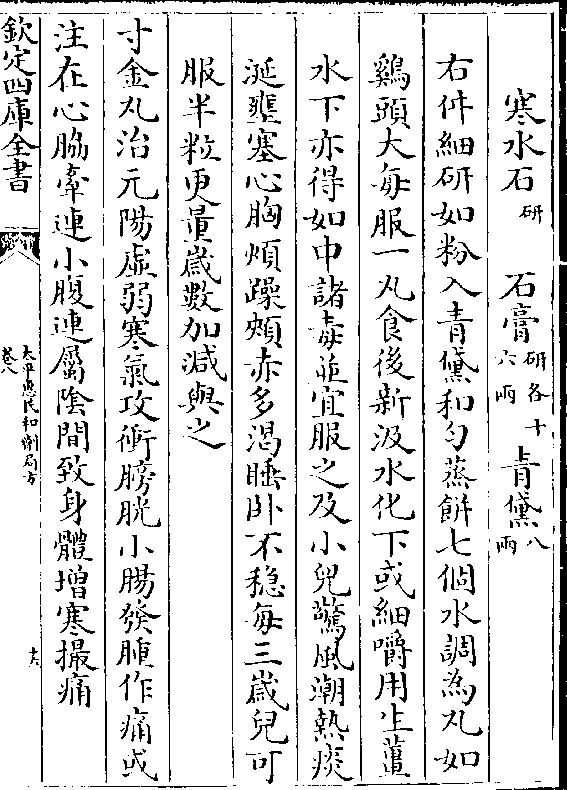 寒水石研 石膏研各十六兩 青黛八兩
右件細研如粉入青黛和匀蒸餅七個水調為丸如
鷄頭大每服一丸食後新汲水化下或細嚼用生薑
水下亦得如中諸毒並宜服之及小兒驚風潮熱痰
涎壅塞心胸煩躁頰赤多渴睡卧不穩每三歲兒可
服半粒更量歲數加減與之
寸金丸治元陽虛弱寒氣攻衝膀胱小腸發腫作痛或
注在心脇牽連小腹連屬陰間致身體增寒撮痛
欽定四庫全書
太平惠民和劑局方
卷八
十六